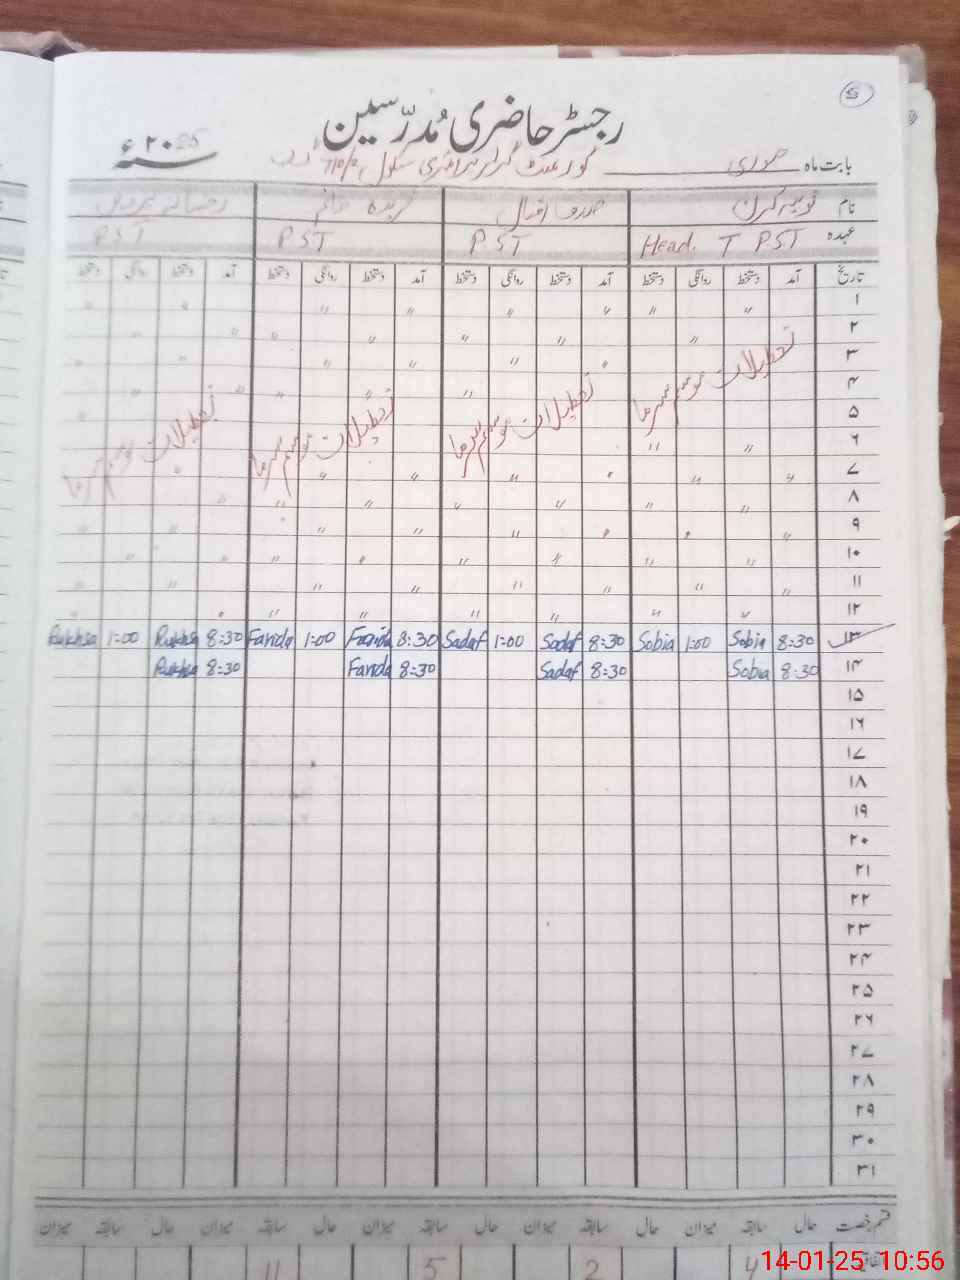 5
رجسٹر حاضری مُدرّسین
۲۰25 سنہء
بابت ماہ جنوری گورنمنٹ گرلز پرائمری سکول
نام صدف افضال فریدہ خانم
عہدہ Head. T PST PST PST PST
تاریخ آمد دستخط روانگی دستخط آمد دستخط روانگی دستخط آمد دستخط روانگی دستخط آمد دستخط روانگی دستخط
۱ " " " " " "
۲ " " " " " "
۳ " " " "
۴ " " "
تعطیلات موسم سرما تعطیلات موسم سرما تعطیلات موسم سرما تعطیلات موسم سرما
۵
۶ " "
۷ " " " " " "
۸ " " " " " " "
۹ " " " " " "
۱۰ " " " " " "
۱۱ " " " " " "
۱۲ " " " " " "
۱۳ 8:30 Sobia 1:00 Sobia 8:30 Sadaf 1:00 Sadaf 8:30 Farida 1:00 Farida 8:30 Rukhsa 1:00 Rukhsa
۱۴ 8:30 Sobia 8:30 Sadaf 8:30 Farida 8:30 Rukhsa
۱۵
۱۶
۱۷
۱۸
۱۹
۲۰
۲۱
۲۲
۲۳
۲۴
۲۵
۲۶
۲۷
۲۸
۲۹
۳۰
۳۱
قسم رخصت حال سابقہ میزان حال سابقہ میزان حال سابقہ میزان حال سابقہ میزان
اتفاقیہ 4 2 5 11
14-01-25 10:56